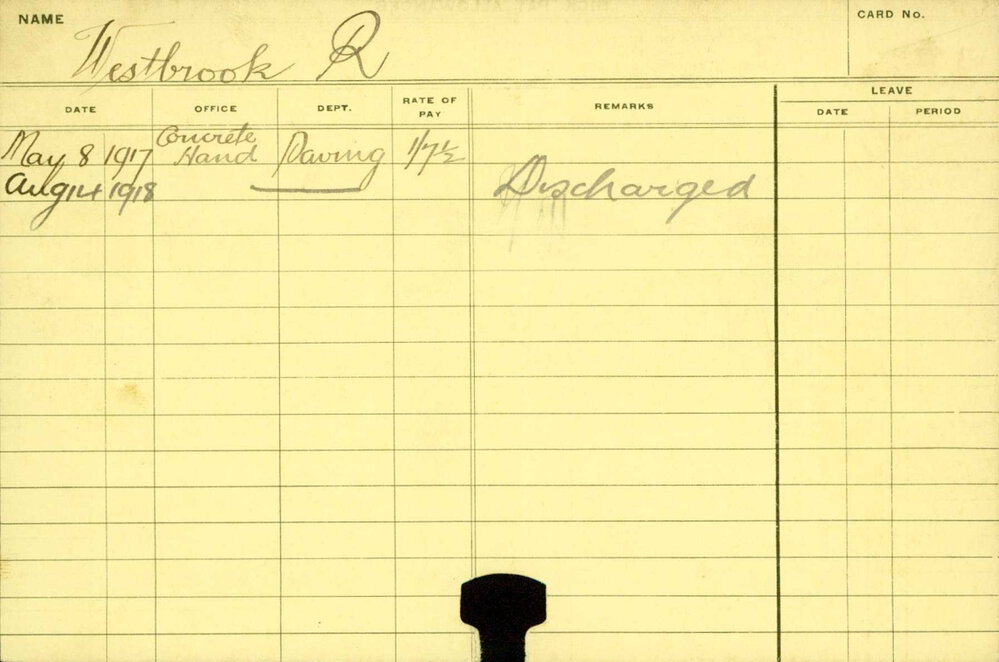 NAME
Westbrook R
CARD No.
DATE OFFICE DEPT. RATE OF PAY REMARKS LEAVE
DATE PERIOD
May 8 1917 Concrete Hand Paving 1/7½
Aug 14 1918 Discharged